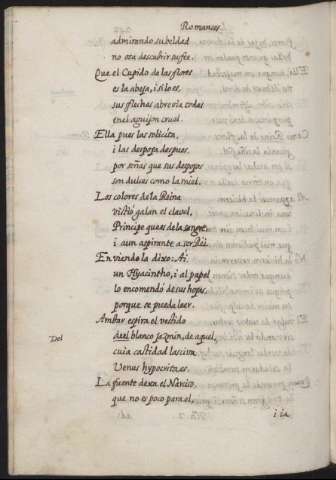 Romances
admirando su beldad
no osa descubrir su fee.
Que el Cupido de las flores
es la abeja, i si lo es
sus flechas abrevia todas
en el aguijon cruel.
Ella pues las solicita,
i las despoja despues,
por señas que sus despojos
son dulces como la miel.
Los colores de la Reina
vistiò galan el clavel,
Principe que es de la sangre,
i aun aspirante a ser Rei.
En viendo la dixo: Ai
un Hyacintho, i al papel
lo encomendò de sus hojas,
porque se pueda leer.
Ambar espira el vestido
Del
del blanco jazmin, de aquel,
cuia castidad lasciva
Venus hypocrita es.
La fuente dexa el Narciso,
que no es poco para el,
i ia